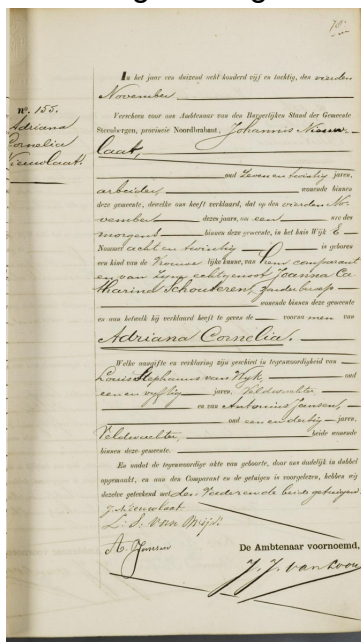 78.
nº. 155.
Adriana
Cornelia
Nieuwlaat
In het jaar een duizend acht honderd vijf en tachtig, den vierden
November
Verscheen voor ons Ambtenaar van den Burgerlijken Stand der Gemeente
Steenbergen, provincie Noordbrabant, Johannis Nieuw-
laat,
oud zeven en twintig jaren,
arbeider, wonende binnen
deze gemeente, dewelke ons heeft verklaard, dat op den vierden No
vember dezes jaars, om een ure des
morgens binnen deze gemeente, in het huis Wijk E
Nommer acht en twintig is geboren
een kind van de Vrouwelijke kunne, van hem comparant
en van zijne echtgenoot Joanna Ca
tharina Schouteren, zonder beroep
wonende binnen deze gemeente
en aan hetwelk hij verklaard heeft te geven de voornamen van
Adriana Cornelia.
Welke aangifte en verklaring zijn geschied in tegenwoordigheid van
Louis Stephanus van Wijk, oud
een en vijftig jaren, Veldwachter
en van Antonius Jansen,
oud een en dertig jaren,
Veldwachter, beide wonende
binnen deze gemeente.
En nadat de tegenwoordige akte van geboorte, door ons dadelijk in dubbel
opgemaakt, en aan den Comparant en de getuigen is voorgelezen, hebben wij
dezelve geteekend met den Vader en de beide getuigen.
J. Nieuwlaat
L. S. van Wijk.
A. Jansen
De Ambtenaar voornoemd,
J. J. van Loon